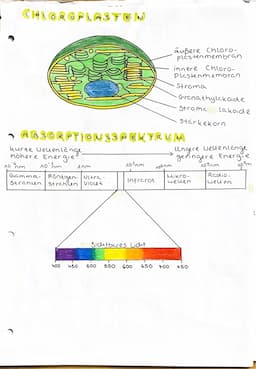 CHLOROPLASTEN
äußere Chloro-
plastenmembran
innere Chloro-
plastenmembran
Stroma
Granathylakoide
Stroma lakoide
Stärkekorn
ABSORPTIONSSPEKTRUM
kurze Wellenlänge
höhere Energie
längere Wellenlänge
geringere Energie
Gamma-
strahlen
Röntgen-
strahlen
Ultra-
violet
Infrarot
Mikro-
wellen
Radio-
wellen
Sichtbares Licht
400 450 500 550 600 650 700